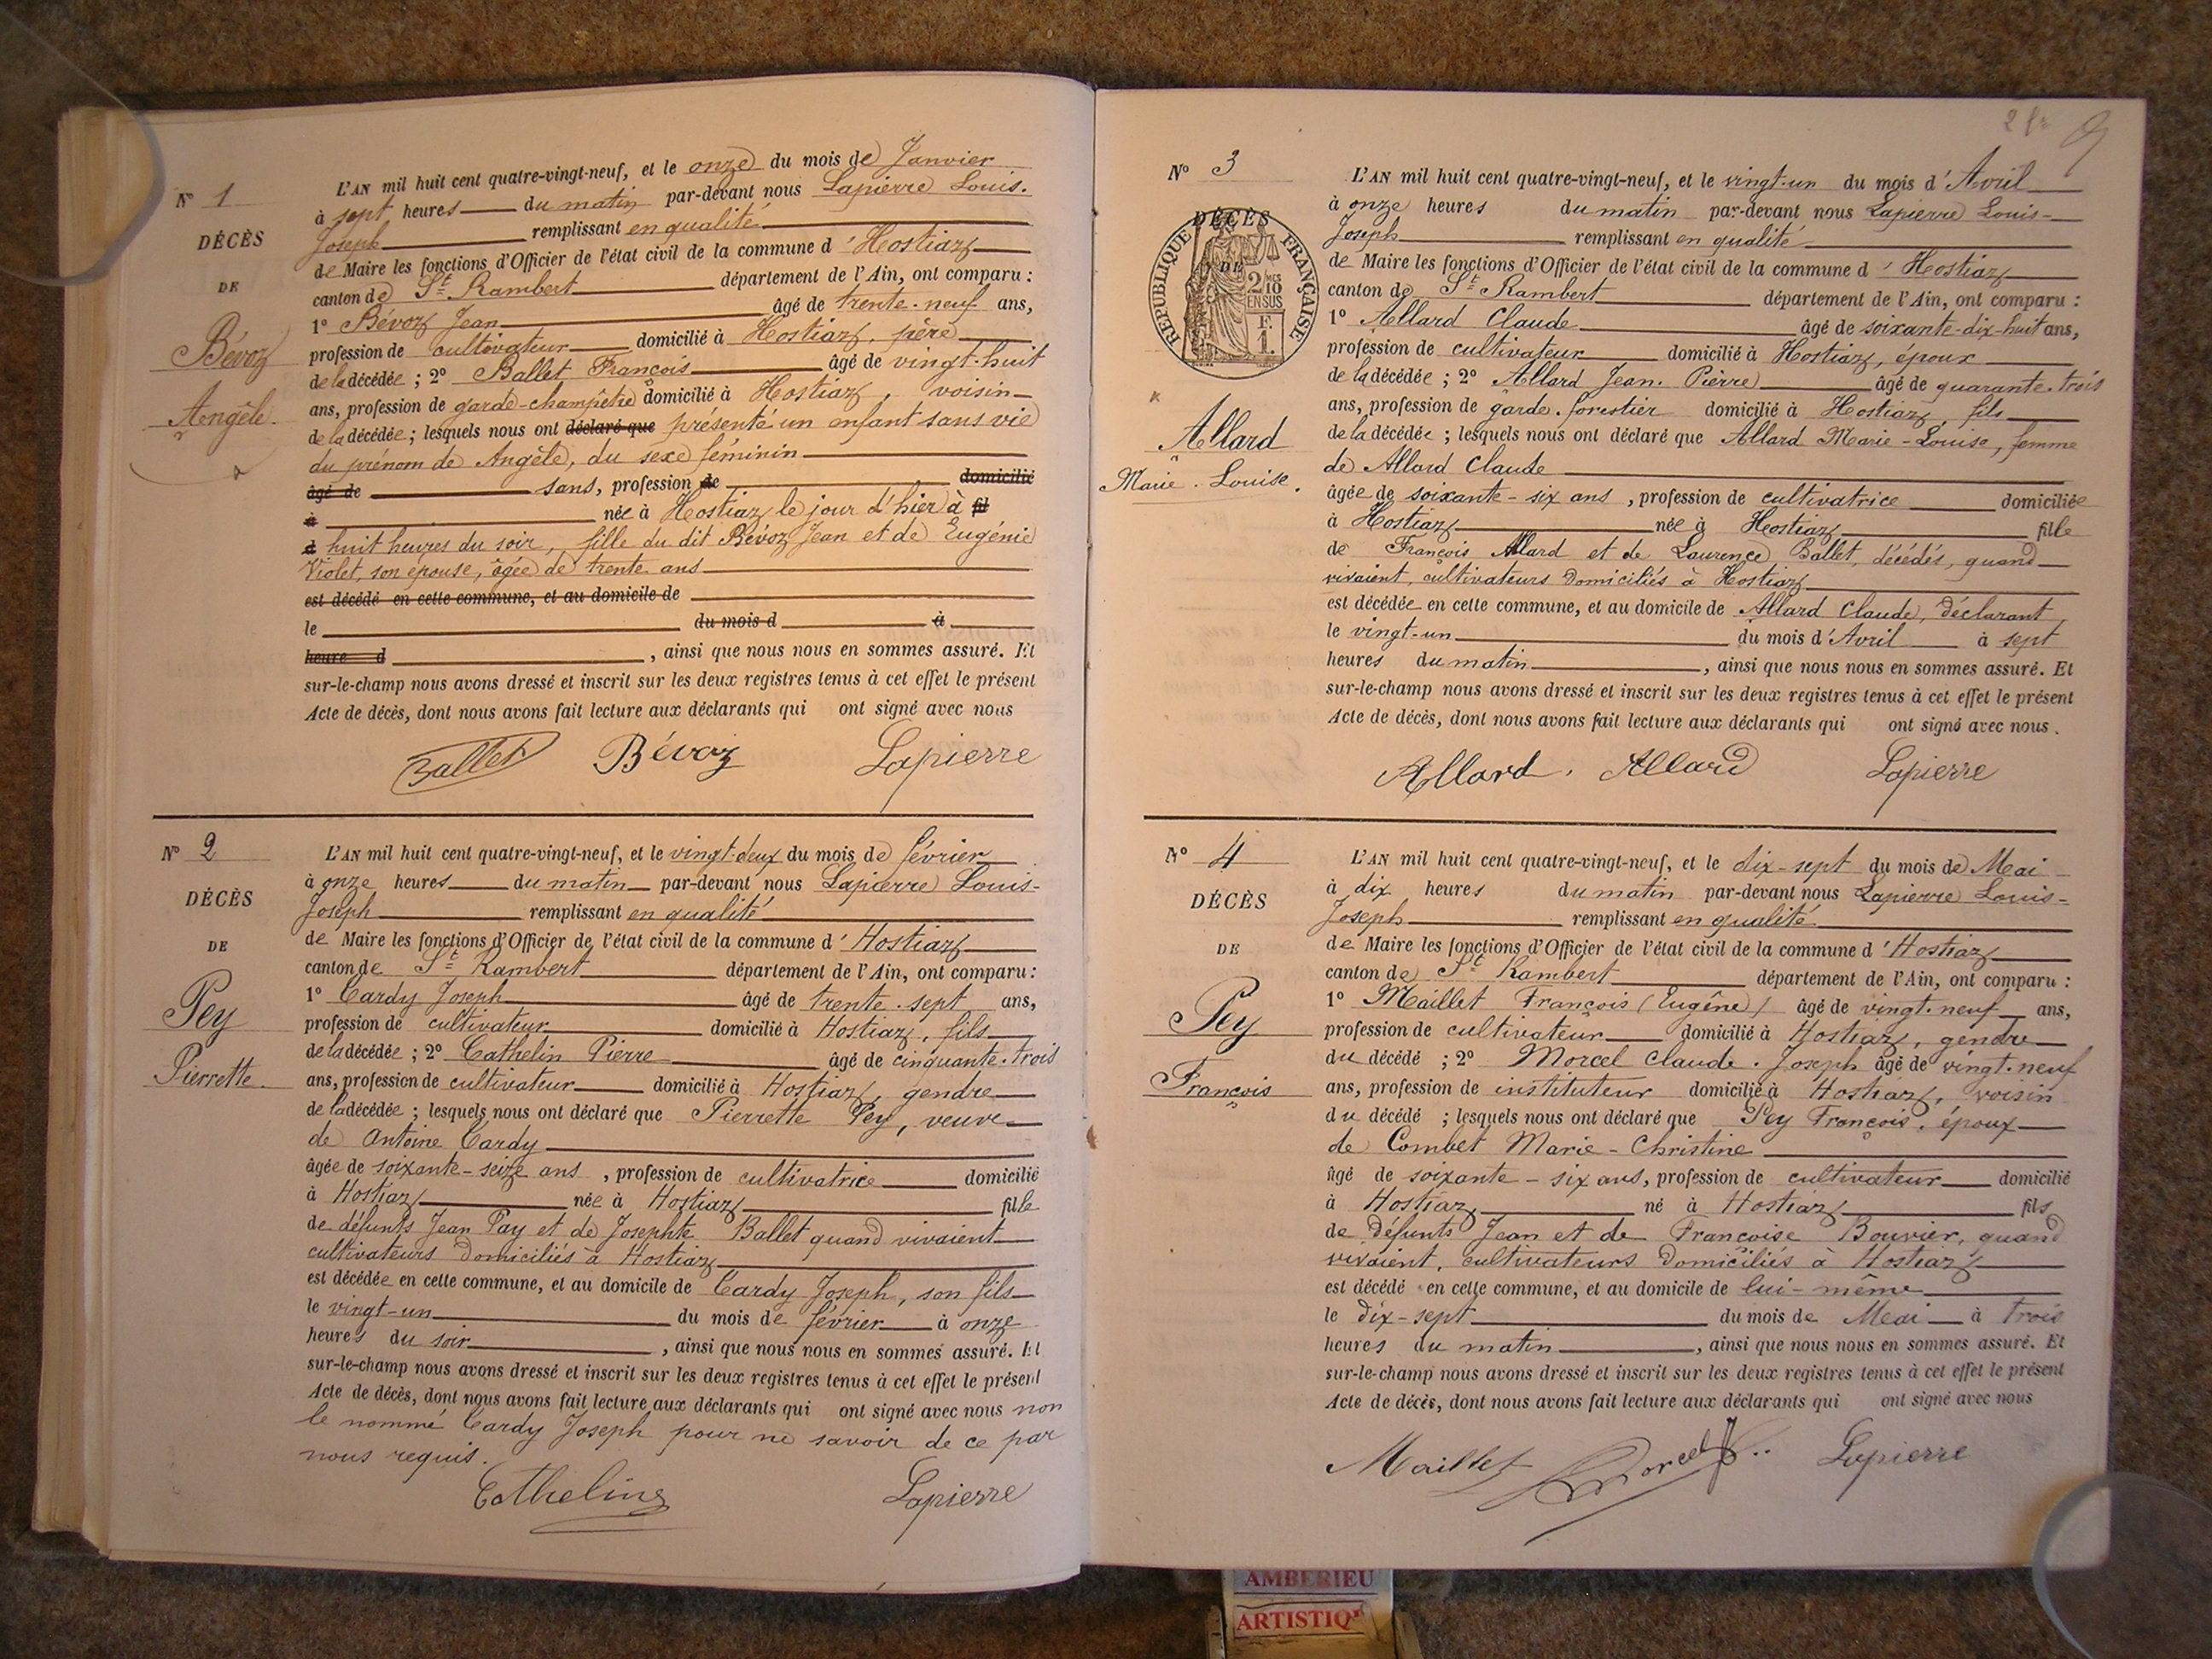 N° 1
DÉCÈS
DE
Bévoz
Angèle.
L'AN mil huit cent quatre-vingt-neuf, et le onze du mois de Janvier
à sept heures du matin par-devant nous Lapierre Louis.
Joseph remplissant en qualité
de Maire les fonctions d'Officier de l'état civil de la commune d'Hostiaz
canton de St Rambert département de l'Ain, ont comparu :
1° Bévoz Jean âgé de trente-neuf ans,
profession de cultivateur domicilié à Hostiaz, père
de la décédée ; 2° Ballet François âgé de vingt-huit
ans, profession de garde-champêtre domicilié à Hostiaz, voisin
de la décédée ; lesquels nous ont déclaré que présenté un enfant sans vie
du prénom de Angèle, du sexe féminin
âgé de sans, profession de domicilié
à née à Hostiaz le jour d'hier à fil
d huit heures du soir, fille du dit Bévoz Jean et de Eugénie
Violet, son épouse, âgée de trente ans
est décédé en cette commune, et au domicile de
le du mois d à
heure d , ainsi que nous nous en sommes assuré. Et
sur-le-champ nous avons dressé et inscrit sur les deux registres tenus à cet effet le présent
Acte de décès, dont nous avons fait lecture aux déclarants qui ont signé avec nous
Ballet Bévoz Lapierre
N° 2
DÉCÈS
DE
Pey
Pierrette.
L'AN mil huit cent quatre-vingt-neuf, et le vingt-deux du mois de février
à onze heures du matin par-devant nous Lapierre Louis-
Joseph remplissant en qualité
de Maire les fonctions d'Officier de l'état civil de la commune d'Hostiaz
canton de St Rambert département de l'Ain, ont comparu :
1° Cardy Joseph âgé de trente-sept ans,
profession de cultivateur domicilié à Hostiaz, fils
de la décédée ; 2° Cathelin Pierre âgé de cinquante-trois
ans, profession de cultivateur domicilié à Hostiaz, gendre
de la décédée ; lesquels nous ont déclaré que Pierrette Pey, veuve
de Antoine Cardy
âgée de soixante-seize ans, profession de cultivatrice domicilié
à Hostiaz née à Hostiaz fille
de défunts Jean Pay et de Josephte Ballet quand vivaient
cultivateurs domiciliés à Hostiaz
est décédée en cette commune, et au domicile de Cardy Joseph, son fils
le vingt-un du mois de février à onze
heures du soir , ainsi que nous nous en sommes assuré. Et
sur-le-champ nous avons dressé et inscrit sur les deux registres tenus à cet effet le présent
Acte de décès, dont nous avons fait lecture aux déclarants qui ont signé avec nous non
le nommé Cardy Joseph pour ne savoir de ce par
nous requis.
Cathelin Lapierre
N° 3
DÉCÈS
DE
RÉPUBLIQUE FRANÇAISE
2 MES
10
EN SUS
F.
1.
Allard
Marie-Louise.
L'AN mil huit cent quatre-vingt-neuf, et le vingt-un du mois d'Avril
à onze heures du matin par-devant nous Lapierre Louis-
Joseph remplissant en qualité
de Maire les fonctions d'Officier de l'état civil de la commune d'Hostiaz
canton de St Rambert département de l'Ain, ont comparu :
1° Allard Claude âgé de soixante-dix-huit ans,
profession de cultivateur domicilié à Hostiaz, époux
de la décédée ; 2° Allard Jean-Pierre âgé de quarante-trois
ans, profession de garde-forestier domicilié à Hostiaz, fils
de la décédée ; lesquels nous ont déclaré que Allard Marie-Louise, femme
de Allard Claude
âgée de soixante-six ans, profession de cultivatrice domiciliée
à Hostiaz née à Hostiaz fille
de François Allard et de Laurence Ballet, décédés, quand
vivaient, cultivateurs domiciliés à Hostiaz
est décédée en cette commune, et au domicile de Allard Claude, déclarant,
le vingt-un du mois d'Avril à sept
heures du matin , ainsi que nous nous en sommes assuré. Et
sur-le-champ nous avons dressé et inscrit sur les deux registres tenus à cet effet le présent
Acte de décès, dont nous avons fait lecture aux déclarants qui ont signé avec nous.
Allard. Allard Lapierre
N° 4
DÉCÈS
DE
Pey
François
L'AN mil huit cent quatre-vingt-neuf, et le dix-sept du mois de Mai
à dix heures du matin par-devant nous Lapierre Louis-
Joseph remplissant en qualité
de Maire les fonctions d'Officier de l'état civil de la commune d'Hostiaz
canton de St Rambert département de l'Ain, ont comparu :
1° Maillet François (Eugène) âgé de vingt-neuf ans,
profession de cultivateur domicilié à Hostiaz, gendre
du décédé ; 2° Morcel Claude-Joseph âgé de vingt-neuf
ans, profession de instituteur domicilié à Hostiaz, voisin
du décédé ; lesquels nous ont déclaré que Pey François, époux
de Combet Marie-Christine
âgé de soixante-six ans, profession de cultivateur domicilié
à Hostiaz né à Hostiaz fils
de défunts Jean et de Françoise Bouvier, quand
vivaient, cultivateurs domiciliés à Hostiaz
est décédé en cette commune, et au domicile de lui-même
le dix-sept du mois de Mai à trois
heures du matin , ainsi que nous nous en sommes assuré. Et
sur-le-champ nous avons dressé et inscrit sur les deux registres tenus à cet effet le présent
Acte de décès, dont nous avons fait lecture aux déclarants qui ont signé avec nous
Maillet Morcel Lapierre
AMBERIEU
ARTISTIQ